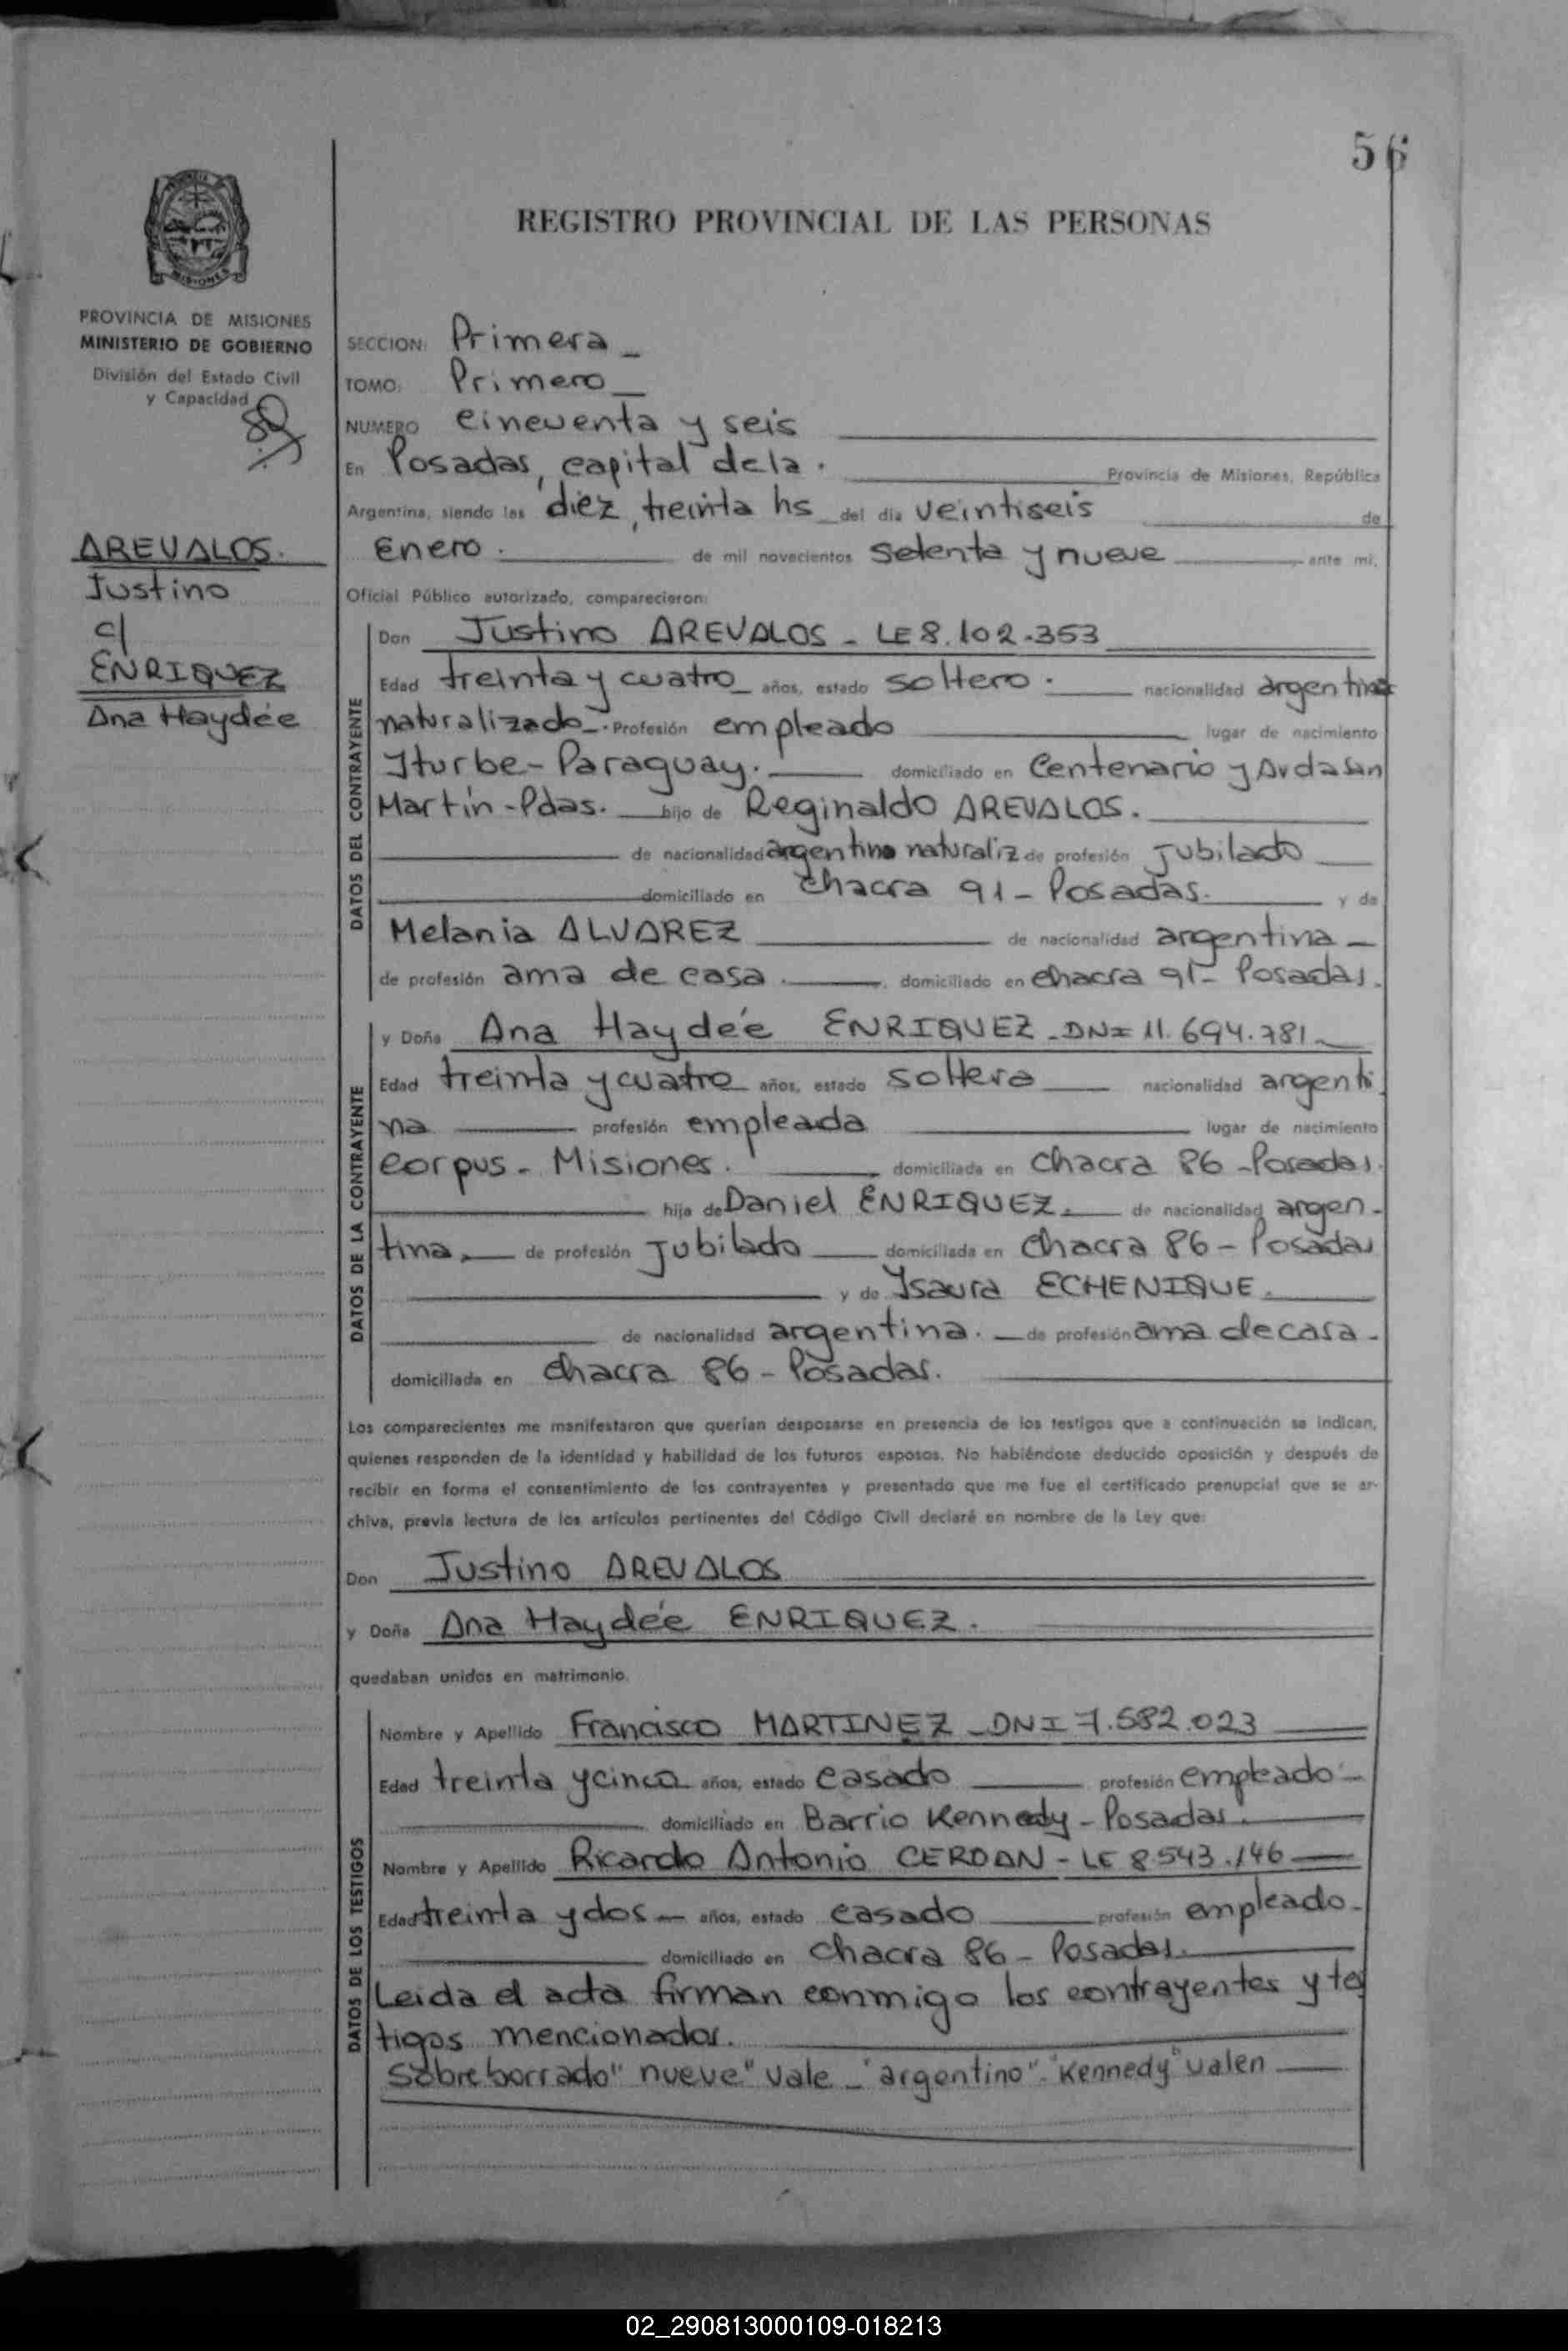 56
REGISTRO PROVINCIAL DE LAS PERSONAS
PROVINCIA DE MISIONES
MINISTERIO DE GOBIERNO
División del Estado Civil
y Capacidad
AREVALOS.
Justino
c/
ENRIQUEZ
Ana Haydée
SECCION: Primera
TOMO: Primero
NUMERO cincuenta y seis
En Posadas, capital de la. Provincia de Misiones, República
Argentina, siendo las diez, treinta hs del día veintiseis de
Enero. de mil novecientos setenta y nueve ante mí,
Oficial Público autorizado, comparecieron:
DATOS DEL CONTRAYENTE
Don Justino AREVALOS - LE 8.102.353
Edad treinta y cuatro años, estado soltero. nacionalidad argentino
naturalizado-. Profesión empleado lugar de nacimiento
Iturbe - Paraguay. domiciliado en Centenario y Avda San
Martín - Pdas. hijo de Reginaldo AREVALOS.
de nacionalidad argentino naturaliz de profesión jubilado
domiciliado en chacra 91 - Posadas. y de
Melania ALVAREZ de nacionalidad argentina -
de profesión ama de casa. domiciliado en chacra 91 - Posadas.
DATOS DE LA CONTRAYENTE
y Doña Ana Haydée ENRIQUEZ - DNI 11.694.781
Edad treinta y cuatro años, estado soltera nacionalidad argenti
na profesión empleada lugar de nacimiento
Corpus - Misiones. domiciliada en chacra 86 - Posadas.
hija de Daniel ENRIQUEZ. de nacionalidad argen-
tina. de profesión jubilado domiciliada en chacra 86 - Posadas
y de Ysaura ECHENIQUE.
de nacionalidad argentina. de profesión ama de casa -
domiciliada en chacra 86 - Posadas.
Los comparecientes me manifestaron que querían desposarse en presencia de los testigos que a continuación se indican,
quienes responden de la identidad y habilidad de los futuros esposos. No habiéndose deducido oposición y después de
recibir en forma el consentimiento de los contrayentes y presentado que me fue el certificado prenupcial que se ar-
chiva, previa lectura de los artículos pertinentes del Código Civil declaré en nombre de la Ley que:
Don Justino AREVALOS
y Doña Ana Haydée ENRIQUEZ.
quedaban unidos en matrimonio.
DATOS DE LOS TESTIGOS
Nombre y Apellido Francisco MARTINEZ - DNI 7.582.023
Edad treinta y cinco años, estado casado profesión empleado -
domiciliado en Barrio Kennedy - Posadas.
Nombre y Apellido Ricardo Antonio CERDAN - LE 8.543.146
Edad treinta y dos - años, estado casado profesión empleado -
domiciliado en chacra 86 - Posadas.
Leida el acta firman conmigo los contrayentes y tes
tigos mencionados.
Sobreborrado "nueve" vale - "argentino" - "Kennedy" valen
02_290813000109-018213